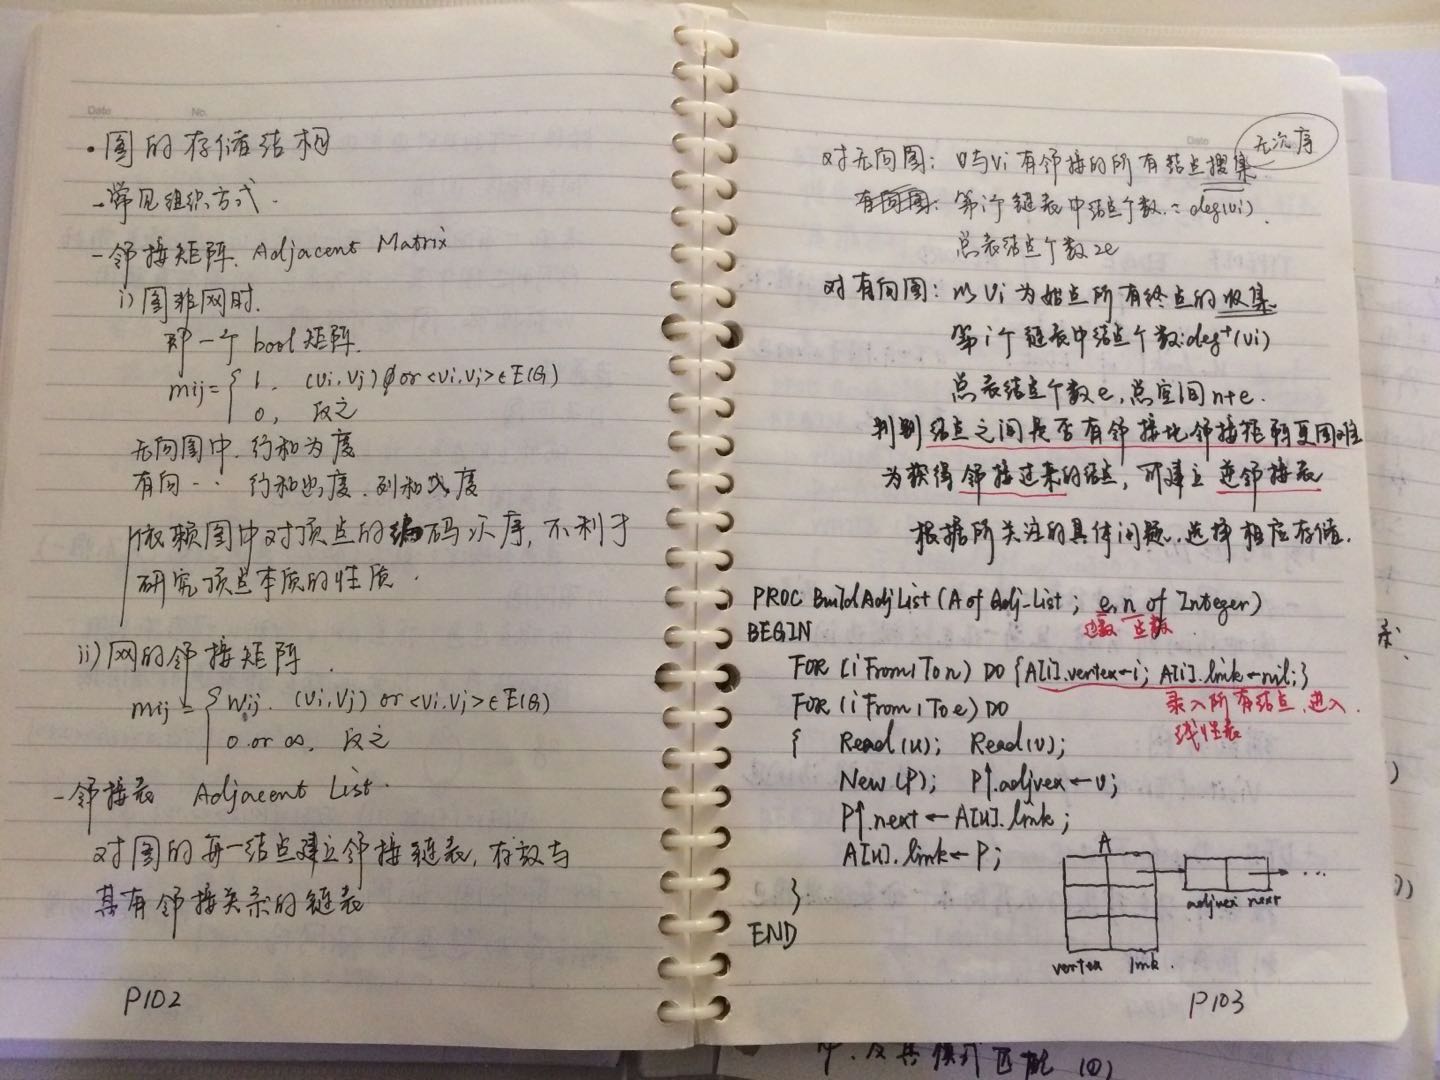 Date No.
·图的存储结构
-常见组织方式.
-邻接矩阵. Adjacent Matrix
i)图非网时.
即一个bool矩阵.
mij={ 1. (Vi,Vj) or <Vi,Vj>∈E(G)
0, 反之
无向图中.行和为度
有向‥ 行和出度.列和入度
依赖图中对顶点的编码次序,不利于
研究顶点本质的性质.
ii)网的邻接矩阵.
mij={ Wij. (Vi,Vj) or <Vi,Vj>∈E(G)
0 or ∞, 反之
-邻接表 Adjacent List.
对图的每一结点建立邻接链表,存放与
其有邻接关系的链表
P102
Date
无次序
对无向图: 与Vi有邻接的所有结点搜集.
第i个链表中结点个数:deg(Vi).
总表结点个数2e
对有向图:以Vi为始点所有终点的收集.
第i个链表中结点个数:deg⁺(Vi)
总表结点个数e,总空间n+e.
判别结点之间是否有邻接比邻接矩阵更困难
为获得邻接过来的结点,可建立逆邻接表
根据所关注的具体问题.选择相应存储.
PROC BuildAdjList(A of Adj-List; e,n of Integer)
边数 点数
BEGIN
FOR(i From 1 To n) DO {A[i].vertex←i; A[i].link←nil;}
录入所有结点,进入
线性表
FOR(i From 1 To e) DO
{ Read(u); Read(v);
New(P); P↑.adjvex←v;
P↑.next←A[u].link;
A[u].link←P;
}
END
A
…
adjvex next
vertex link.
P103
及其模式匹配 (1)